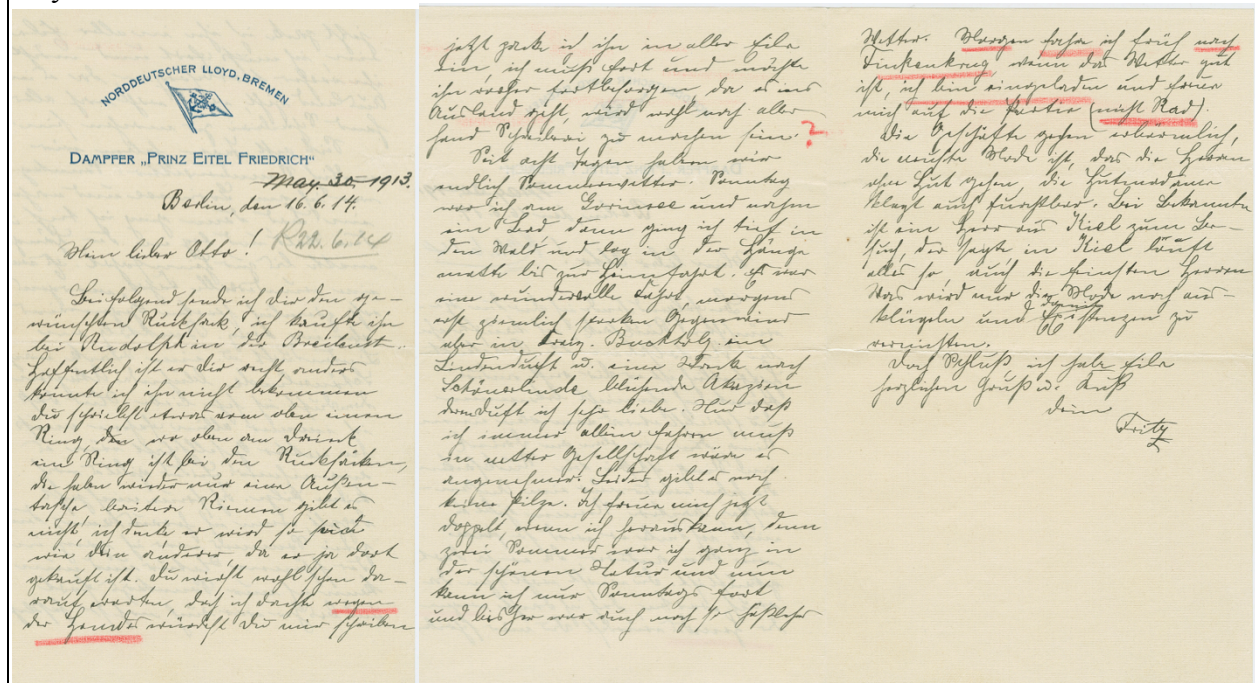 NORDDEUTSCHER LLOYD, BREMEN
DAMPFER „PRINZ EITEL FRIEDRICH"
May. 30. 1913.
Berlin, den 16.6.14.
R 22.6.14
Mein lieber Otto!
Beifolgend sende ich Dir den ge-
wünschten Rucksack, ich kaufte ihn
bei Rudolph in der Breitenstr.
Hoffentlich ist er Dir recht, anders
konnte ich ihn nicht bekommen
Du schriebst etwas vom oben einen
Ring, wo oben am
ein Ring ist bei den Rucksäcken,
die haben wieder nur eine Außen-
tasche, breitere Riemen gibt es
nicht, ich denke er wird so sein
wie Dein anderer, da er ja dort
gekauft ist. Du wirst wohl schon da-
rauf warten, doch ich dachte wegen
der Hemden würdest Du mir schreiben
jetzt packe ich ihn in aller Eile
ein, ich muß fort und möchte
ihn vorher fortbesorgen, da es ins
Ausland geht, wird wohl noch aller-
hand Schreiberei zu machen sein. ?
Seit acht Tagen haben wir
endlich Sommerwetter. Sonntag
war ich am Gorinsee und nahm
ein Bad dann ging ich tief in
den Wald und lag in der Hänge
matte bis zur Heimfahrt. Es war
eine wundervolle Fahrt, morgens
erst ziemlich starken Gegenwind
aber in Franz. Buchholz. ein
Lindenduft u. eine Stunde nach
Schönerlinde blühende Akazien
deren Duft ich sehr liebe. Nur daß
ich immer allein fahren muß
in netter Gesellschaft wäre es
angenehmer. Leider gibt es noch
keine Pilze. Ich freue mich jetzt
doppelt, wenn ich herauskann, denn
zwei Sommer war ich ganz in
der schönen Natur und nun
kann ich nur Sonntags fort
und bisher war auch noch so häßliches
Wetter. Morgen fahre ich früh nach
Finkenkrug, wenn das Wetter gut
ist, ich bin eingeladen und freue
mich auf die Partie (nicht Rad).
Die Geschäfte gehen erbärmlich,
die neuste Mode ist, das die Herren
ohne Hut gehen, die Hutmadame
klagt auch furchtbar. Bei Bekannte
ist ein Herr aus Kiel zum Be-
such, der sagte, in Kiel läuft
alles so, auch die feinsten Herren
Was wird nur die Mode noch aus-
klügeln und damit Existenzen zu
vernichten.
Doch Schluß ich habe Eile
herzlichen Gruß u. Kuß
Dein
Fritz